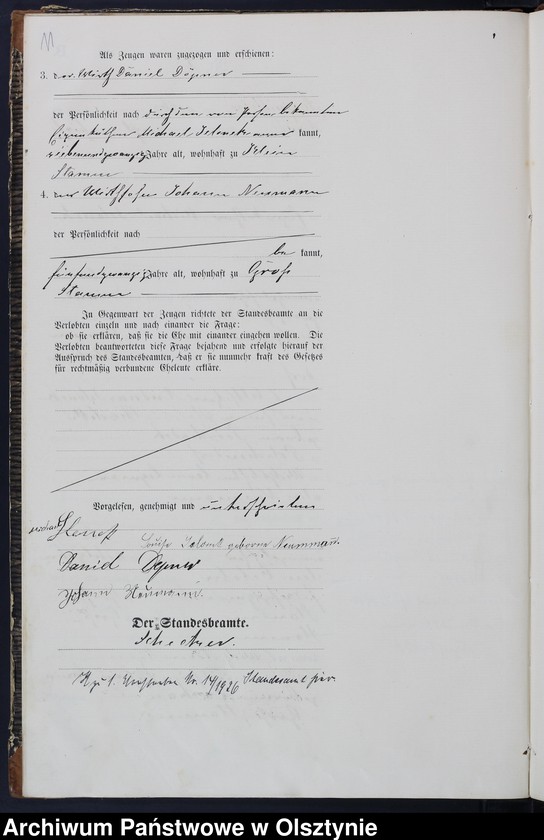 11
Als Zeugen waren zugezogen und erschienen:
3. der Wirth Daniel Döpner
der Persönlichkeit nach durch den von Person bekannten
Eigenkäthner Michael kannt,
siebenundzwanzig Jahre alt, wohnhaft zu Klein
Stamm
4. der Wirthssohn Johann Neumann
der Persönlichkeit nach
be kannt,
fünfundzwanzig Jahre alt, wohnhaft zu Groß
Stamm
In Gegenwart der Zeugen richtete der Standesbeamte an die
Verlobten einzeln und nach einander die Frage:
ob sie erklären, daß sie die Ehe mit einander eingehen wollen. Die
Verlobten beantworteten diese Frage bejahend und erfolgte hierauf der
Ausspruch des Standesbeamten, daß er sie nunmehr kraft des Gesetzes
für rechtmäßig verbundene Eheleute erkläre.
Vorgelesen, genehmigt und unterschrieben
geborne Neumann
Daniel Depner
Johann Neumann.
Der Standesbeamte.
Nr. 14/1926 Standesamt
Archiwum Państwowe w Olsztynie